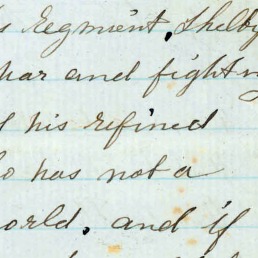 s Regment, Shelby
war and fighting
his refined
has not a
orld. and if